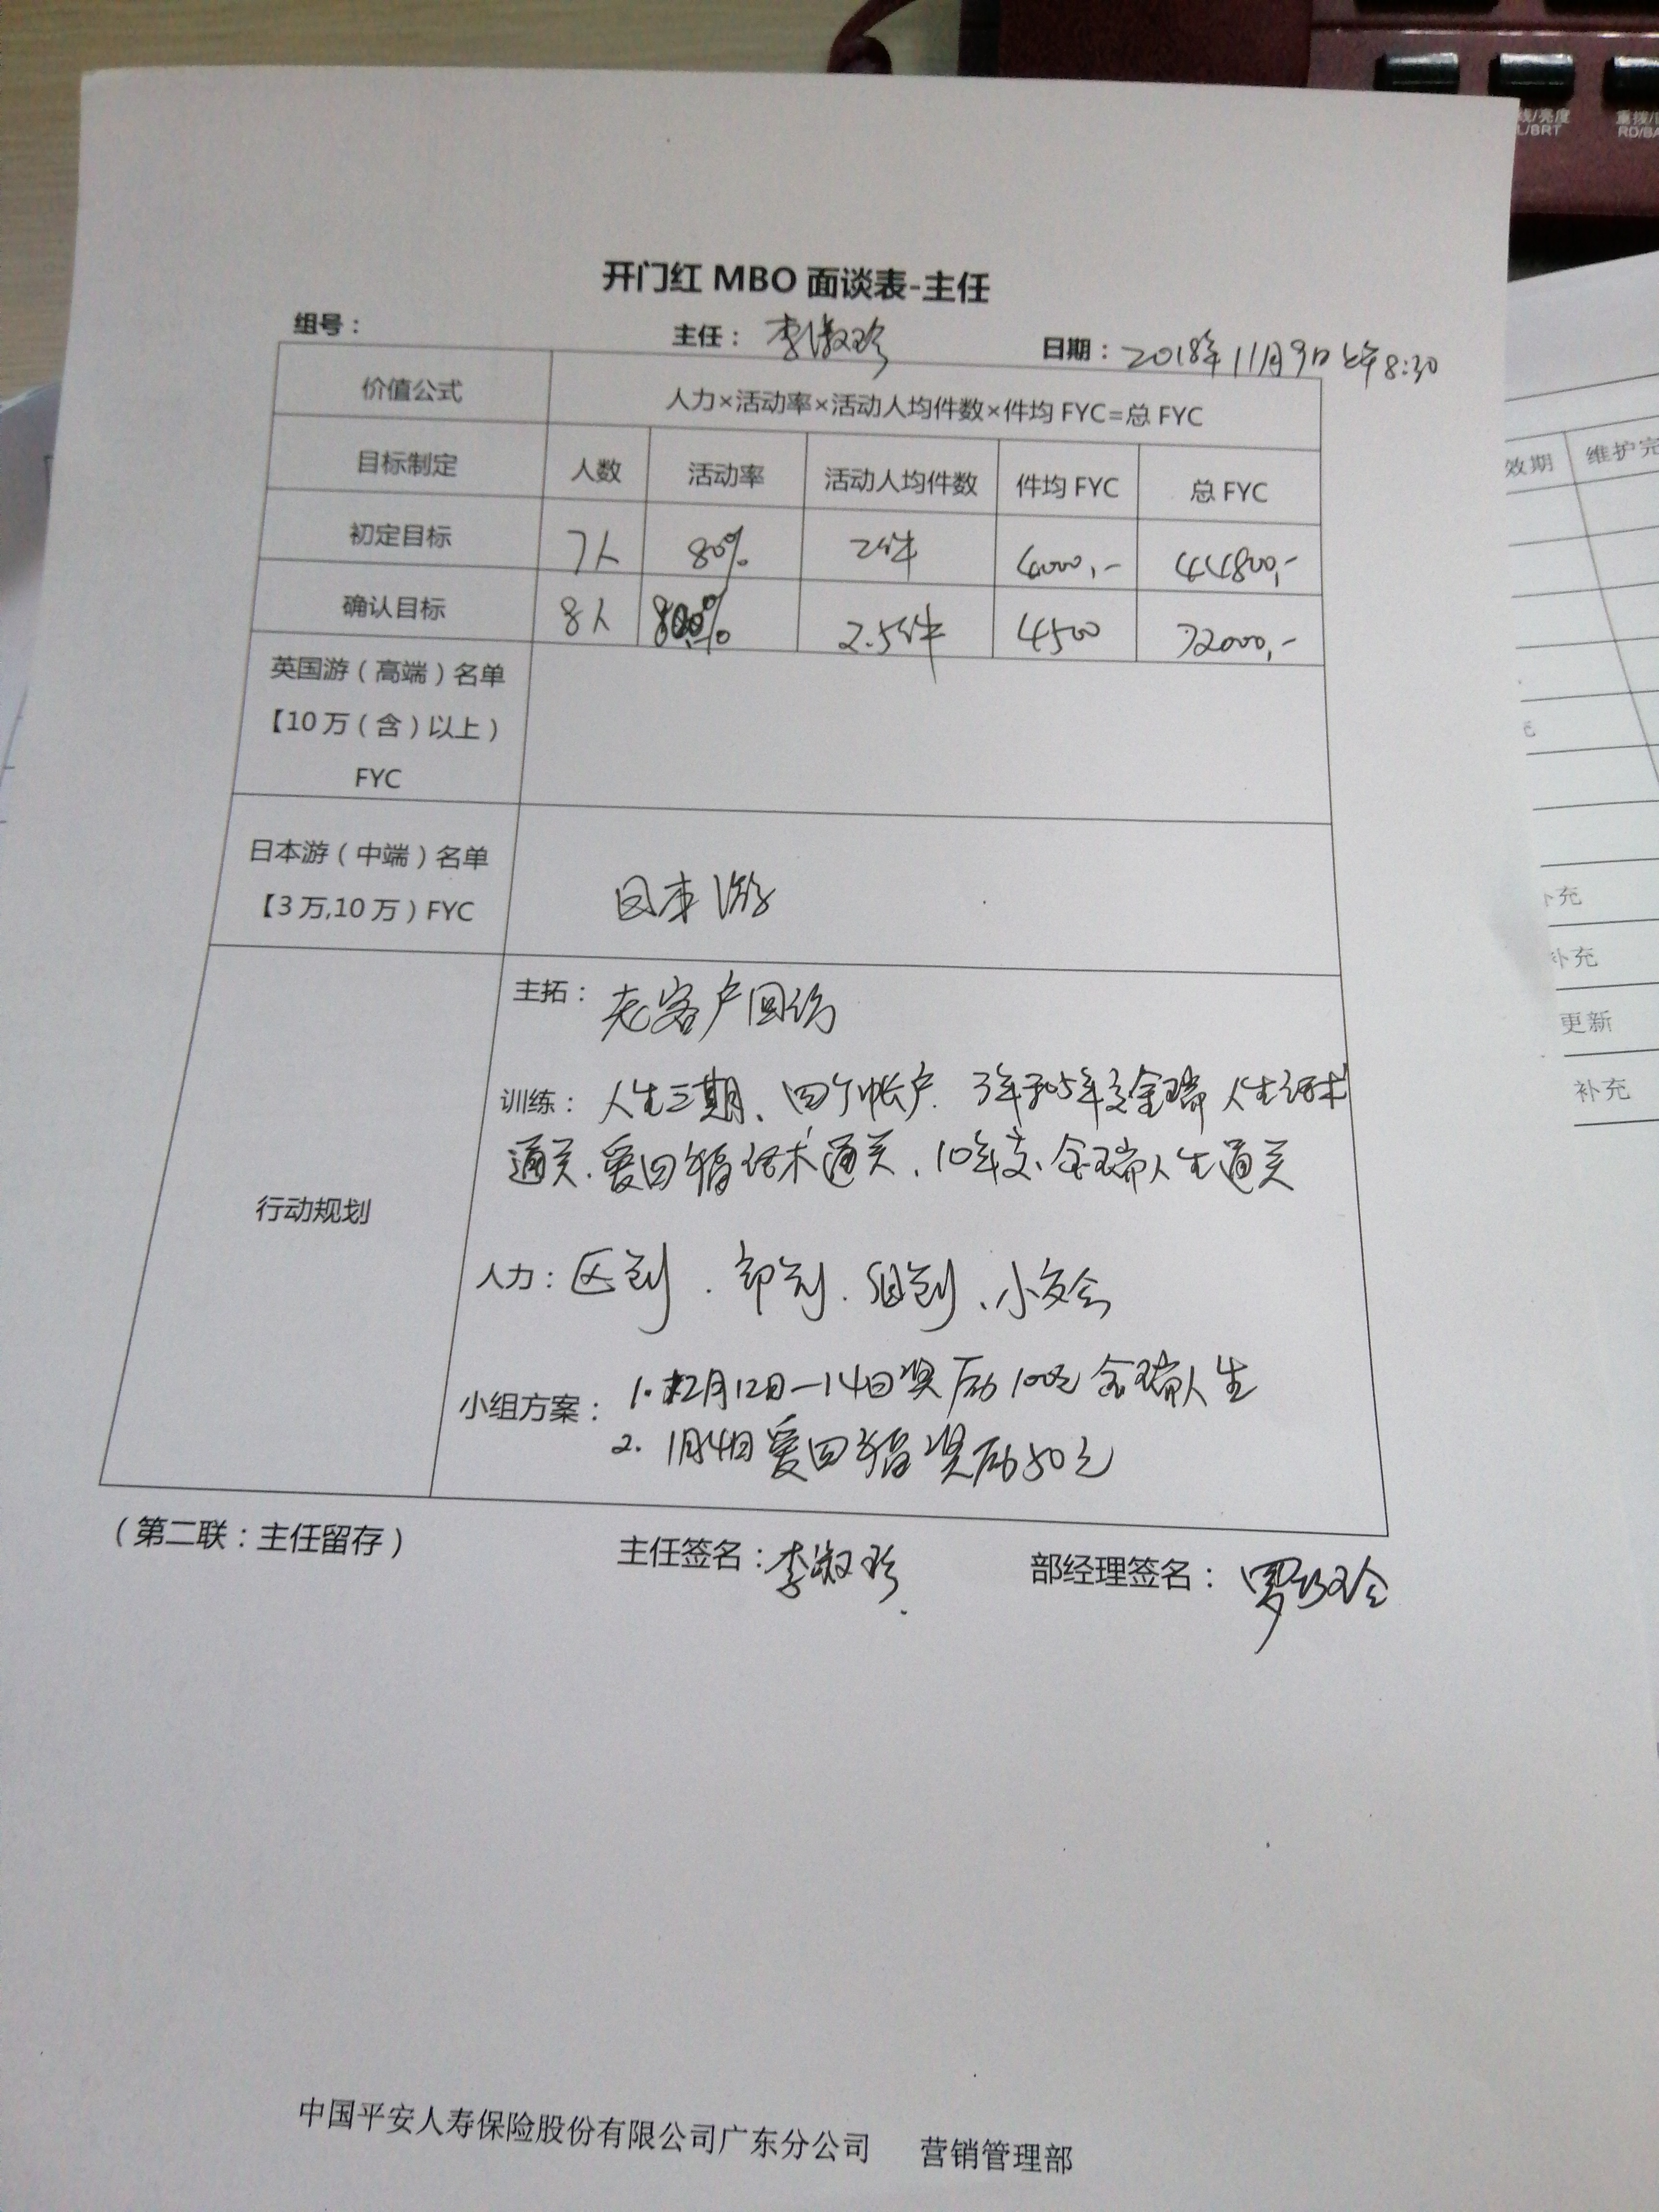 线/亮度
L/BRT
重拨/
RD/BA
开门红 MBO 面谈表-主任
组号： 主任： 李淑珍 日期：2018年11月9日上午8:30
价值公式 人力×活动率×活动人均件数×件均 FYC=总 FYC
目标制定 人数 活动率 活动人均件数 件均 FYC 总 FYC
初定目标 7人 80% 2件 4000,- 44800,-
确认目标 8人 80% 2.5件 4500 72000,-
英国游（高端）名单
【10 万（含）以上）
FYC
日本游（中端）名单
【3 万,10 万）FYC
日本游
行动规划
主拓： 老客户回访
训练： 人生三期、四个帐户、3年和5年交金瑞人生话术
通关、爱回福话术通关、10年交金瑞人生通关
人力： 区创、部创、组创、小交会
小组方案： 1. 12月12日—14日奖励100元金瑞人生
2. 1月4日爱回福奖励50元
（第二联：主任留存） 主任签名：李淑珍 部经理签名：罗
中国平安人寿保险股份有限公司广东分公司 营销管理部
效期 维护完
补充
补充
更新
补充